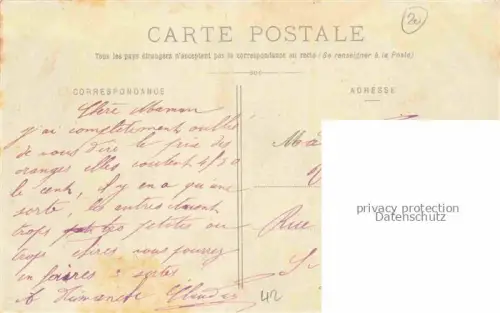 20
CARTE POSTALE
Tous les pays étrangers n'acceptent pas la correspondance au recto (Se renseigner à la Poste)
CORRESPONDANCE
ADRESSE
Chère Maman
j'ai complètement oublié
de vous dire le prix des
oranges elles coutent 4f50
le cent, il y en a qu'une
sorte, les autres étaient
trops petites ou
trop chères vous pourrez
en faires
A Dimanche
Rue
42
privacy protection
Datenschutz